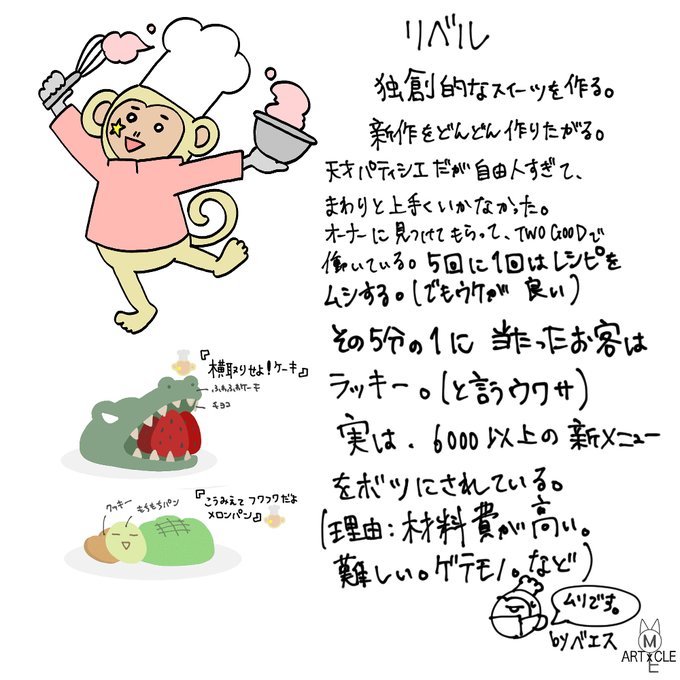 リベル
独創的なスイーツを作る。
新作をどんどん作りたがる。
天才パティシエだが自由人すぎて、
まわりと上手くいかなかった。
オーナーに見つけてもらって、TWO GOODで
働いている。5回に1回はレシピを
ムシする。(でもウケが良い)
その5分の1に当たったお客は
ラッキー。(と言うウワサ)
実は、6000以上の新メニュー
をボツにされている。
(理由:材料費が高い。
難しい。ゲテモノ。など)
ムリです。
byベエス
『横取りせよ!ケーキ』
ふわふわケーキ
チョコ
『こうみえてフワフワだよ
メロンパン』
クッキー
もちもちパン
ME
ART CLE